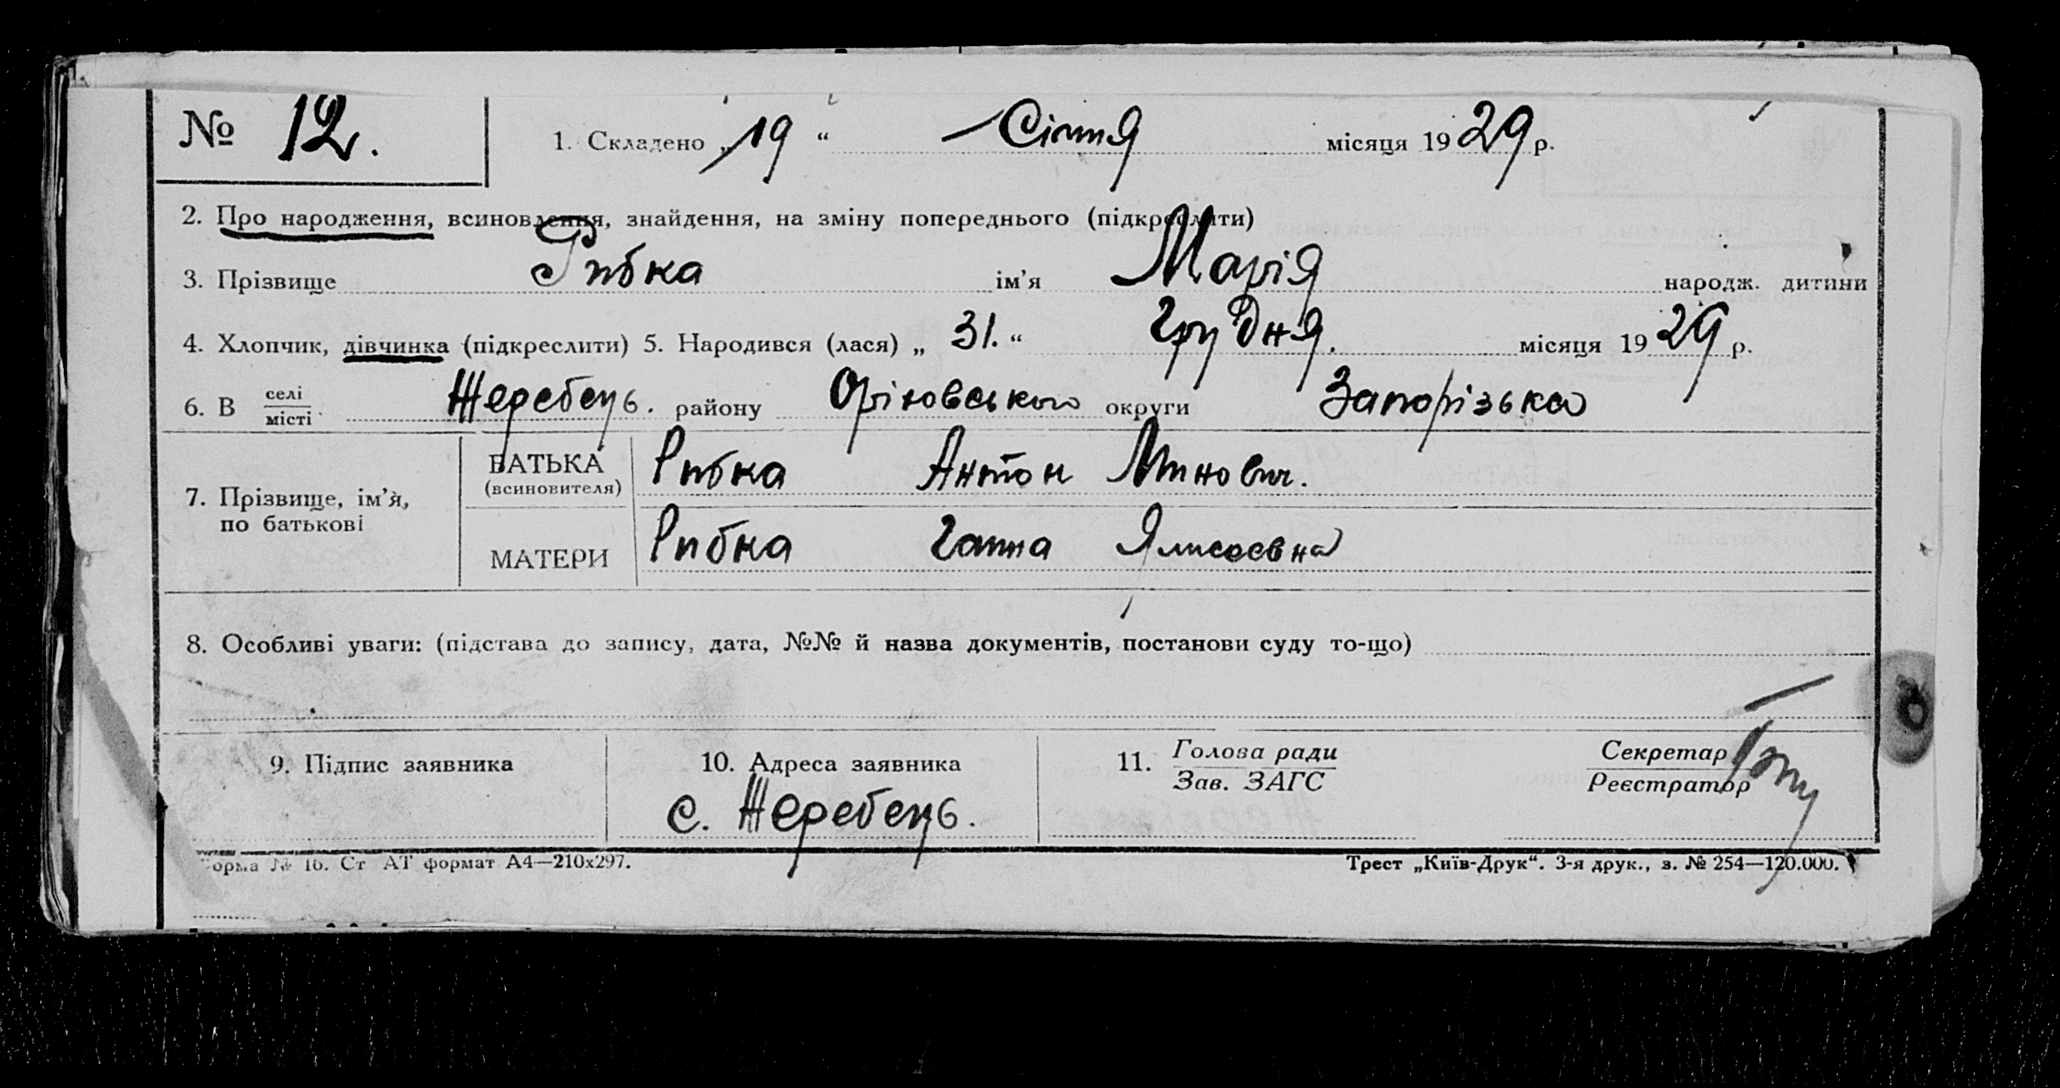 № 12. 1. Складено „19“ Січня місяця 1929 р.
2. Про народження, всиновлення, знайдення, на зміну попереднього (підкреслити)
3. Прізвище Рибка ім’я Марія народж. дитини
4. Хлопчик, дівчинка (підкреслити) 5. Народився (лася) „31.“ Грудня. місяця 1929 р.
6. В селі/місті Жеребець. району Оріховського округи Запорізька
7. Прізвище, ім’я, по батькові
БАТЬКА (всиновителя) Рибка Антон Минович.
МАТЕРИ Рибка Ганна Ялисеєвна
8. Особливі уваги: (підстава до запису, дата, №№ й назва документів, постанови суду то-що)
9. Підпис заявника 10. Адреса заявника 11. Голова ради/Зав. ЗАГС Секретар/Реєстратор
с. Жеребець.
форма № 16. Ст АТ формат А4—210х297. Трест „Київ-Друк“. 3-я друк., з. № 254—120.000.